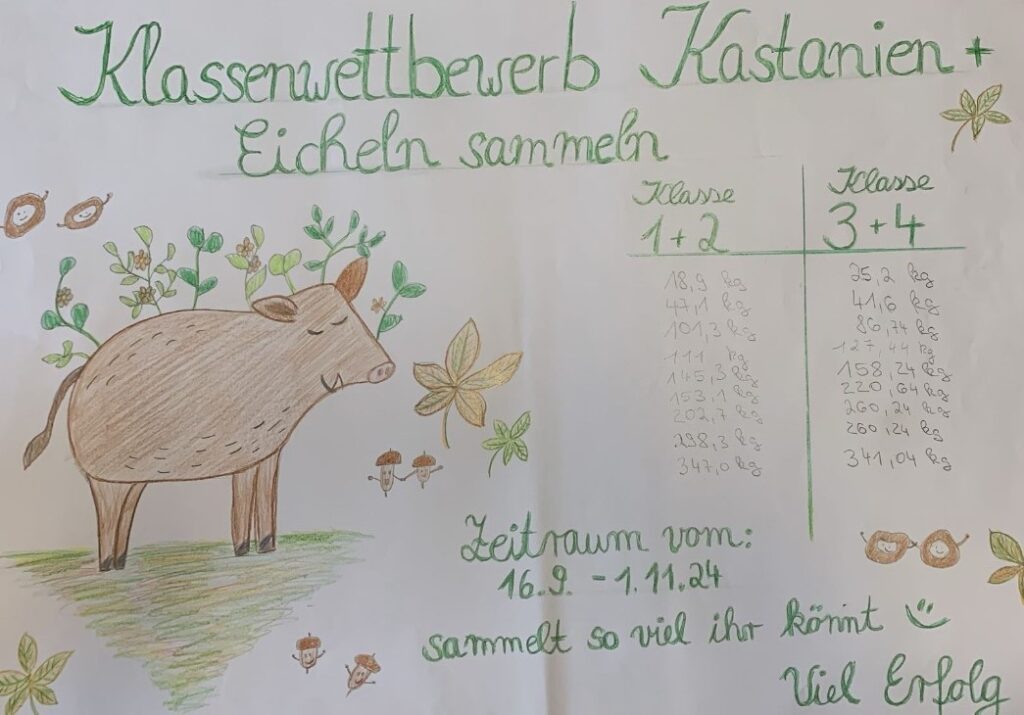 Klassenwettbewerb Kastanien +
Eicheln sammeln
Klasse
1 + 2
18,9 kg
47,1 kg
101,3 kg
111 kg
145,3 kg
153,1 kg
202,7 kg
298,3 kg
347,0 kg
Klasse
3 + 4
25,2 kg
41,6 kg
86,74 kg
127,44 kg
158,24 kg
220,64 kg
260,24 kg
260,24 kg
341,04 kg
Zeitraum vom:
16.9. - 1.11.24
sammelt so viel ihr könnt
Viel Erfolg